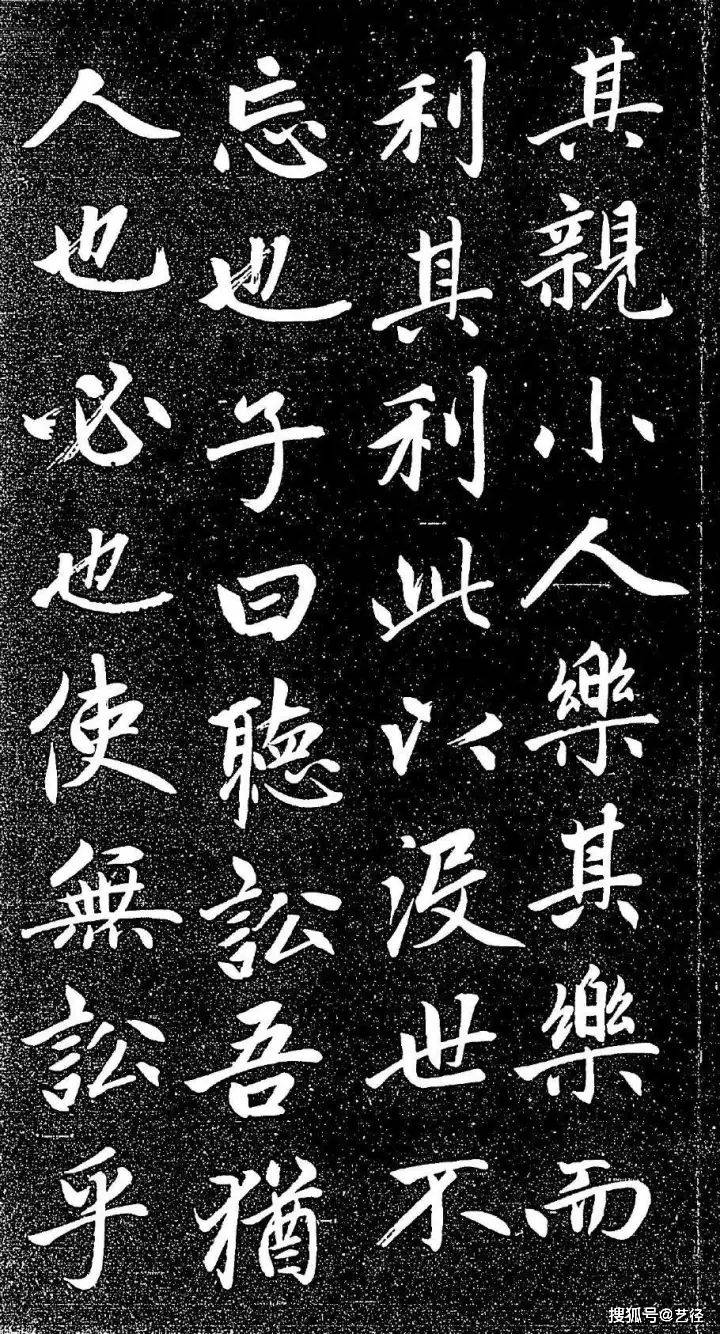 其親小人樂其樂而
利其利此以没世不
忘也子曰聽訟吾猶
人也必也使無訟乎
搜狐号@艺径